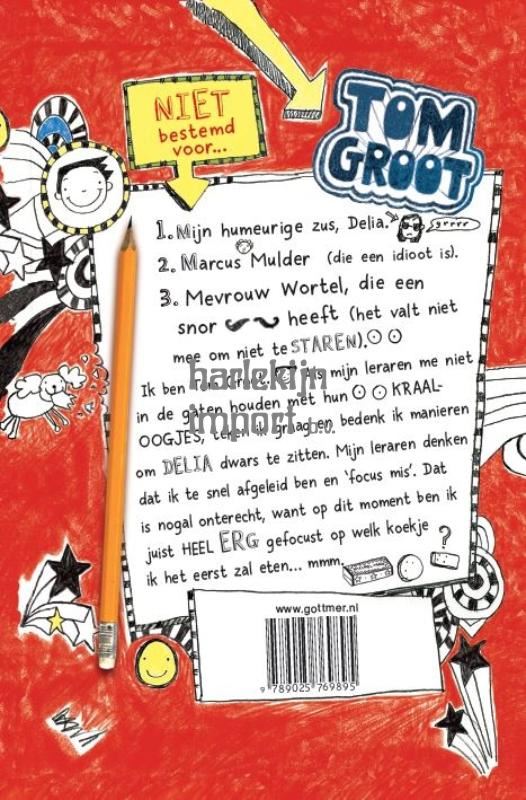 NIET
bestemd
voor...
TOM
GROOT
1. Mijn humeurige zus, Delia.
grrrr
2. Marcus Mulder (die een idioot is).
3. Mevrouw Wortel, die een
snor heeft (het valt niet
mee om niet te STAREN).
Ik ben Tom Groot. Als mijn leraren me niet
in de gaten houden met hun KRAAL-
OOGJES, teken ik graag en bedenk ik manieren
om DELIA dwars te zitten. Mijn leraren denken
dat ik te snel afgeleid ben en 'focus mis'. Dat
is nogal onterecht, want op dit moment ben ik
juist HEEL ERG gefocust op welk koekje
ik het eerst zal eten... mmm.
?
harlekijn
import b.v.
www.gottmer.nl
9 789025 769895